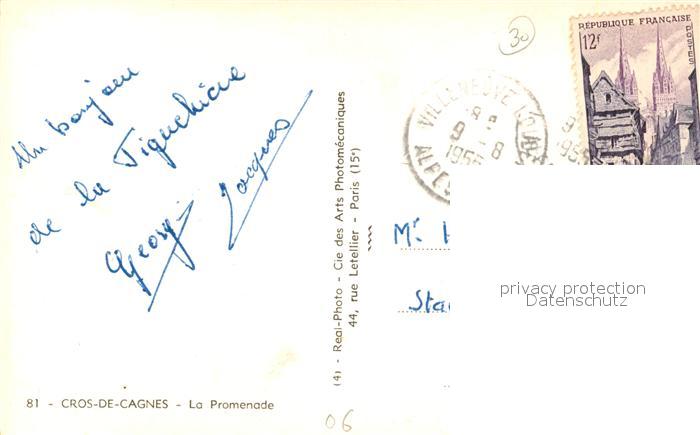 Un bonjour
de la Tiguchière
Georgy
Jacques
81 - CROS-DE-CAGNES - La Promenade
(4) - Real-Photo - Cie des Arts Photomécaniques
44, rue Letellier - Paris (15e)
30
VILLENEUVE LOUBET
9 - 8
1955
ALPES
RÉPUBLIQUE FRANÇAISE
12f
POSTES
Mr
privacy protection
Datenschutz
06